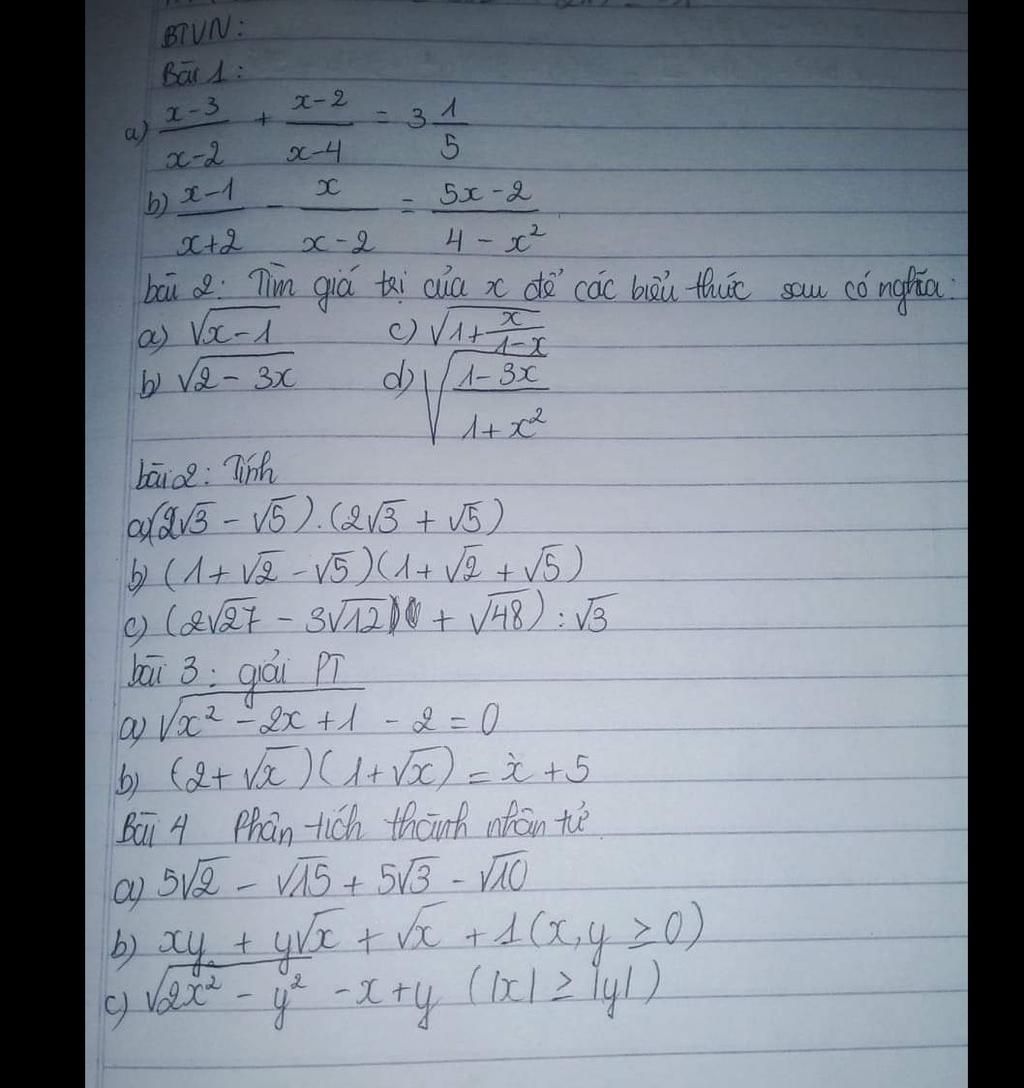 BTVN:
Bài 1:
a) \frac{x-3}{x-2} + \frac{x-2}{x-4} = 3\frac{1}{5}
b) \frac{x-1}{x+2} - \frac{x}{x-2} = \frac{5x-2}{4-x^2}
bài 2: Tìm giá trị của x để các biểu thức sau có nghĩa:
a) \sqrt{x-1} c) \sqrt{1+\frac{x}{1-x}}
b) \sqrt{2-3x} d) \sqrt{\frac{1-3x}{1+x^2}}
bài 2: Tính
a) (2√3 - √5).(2√3 + √5)
b) (1+√2 - √5)(1+√2 + √5)
c) (2√27 - 3√12 + √48) : √3
bài 3: giải PT
a) \sqrt{x^2-2x+1} - 2 = 0
b) (2+√x)(1+√x) = x + 5
Bài 4 Phân tích thành nhân tử
a) 5√2 - √15 + 5√3 - √10
b) xy + y√x + √x + 1 (x, y ≥ 0)
c) \sqrt{2x^2 - y^2} - x + y (|x| ≥ |y|)